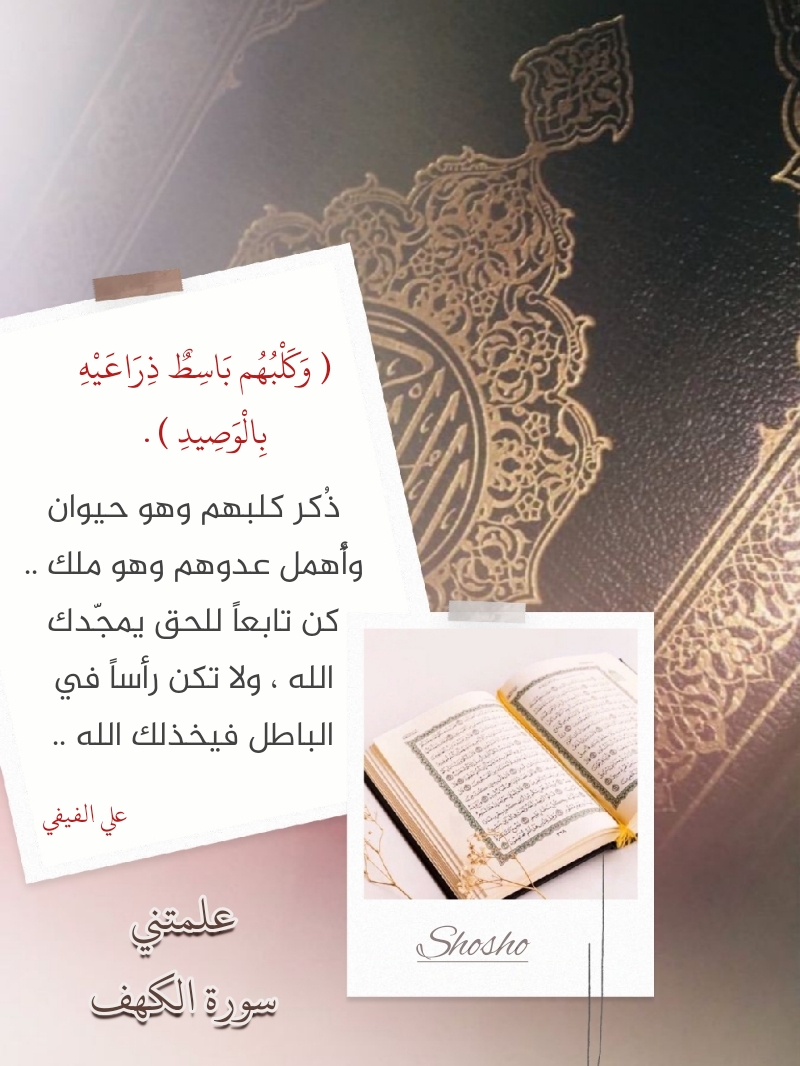 ( وَكَلْبُهُم بَاسِطٌ ذِرَاعَيْهِ
بِالْوَصِيدِ ) .
ذُكر كلبهم وهو حيوان
وأُهمل عدوهم وهو ملك ..
كن تابعاً للحق يمجّدك
الله ، ولا تكن رأساً في
الباطل فيخذلك الله ..
علي الفيفي
Shosho
علمتني
سورة الكهف